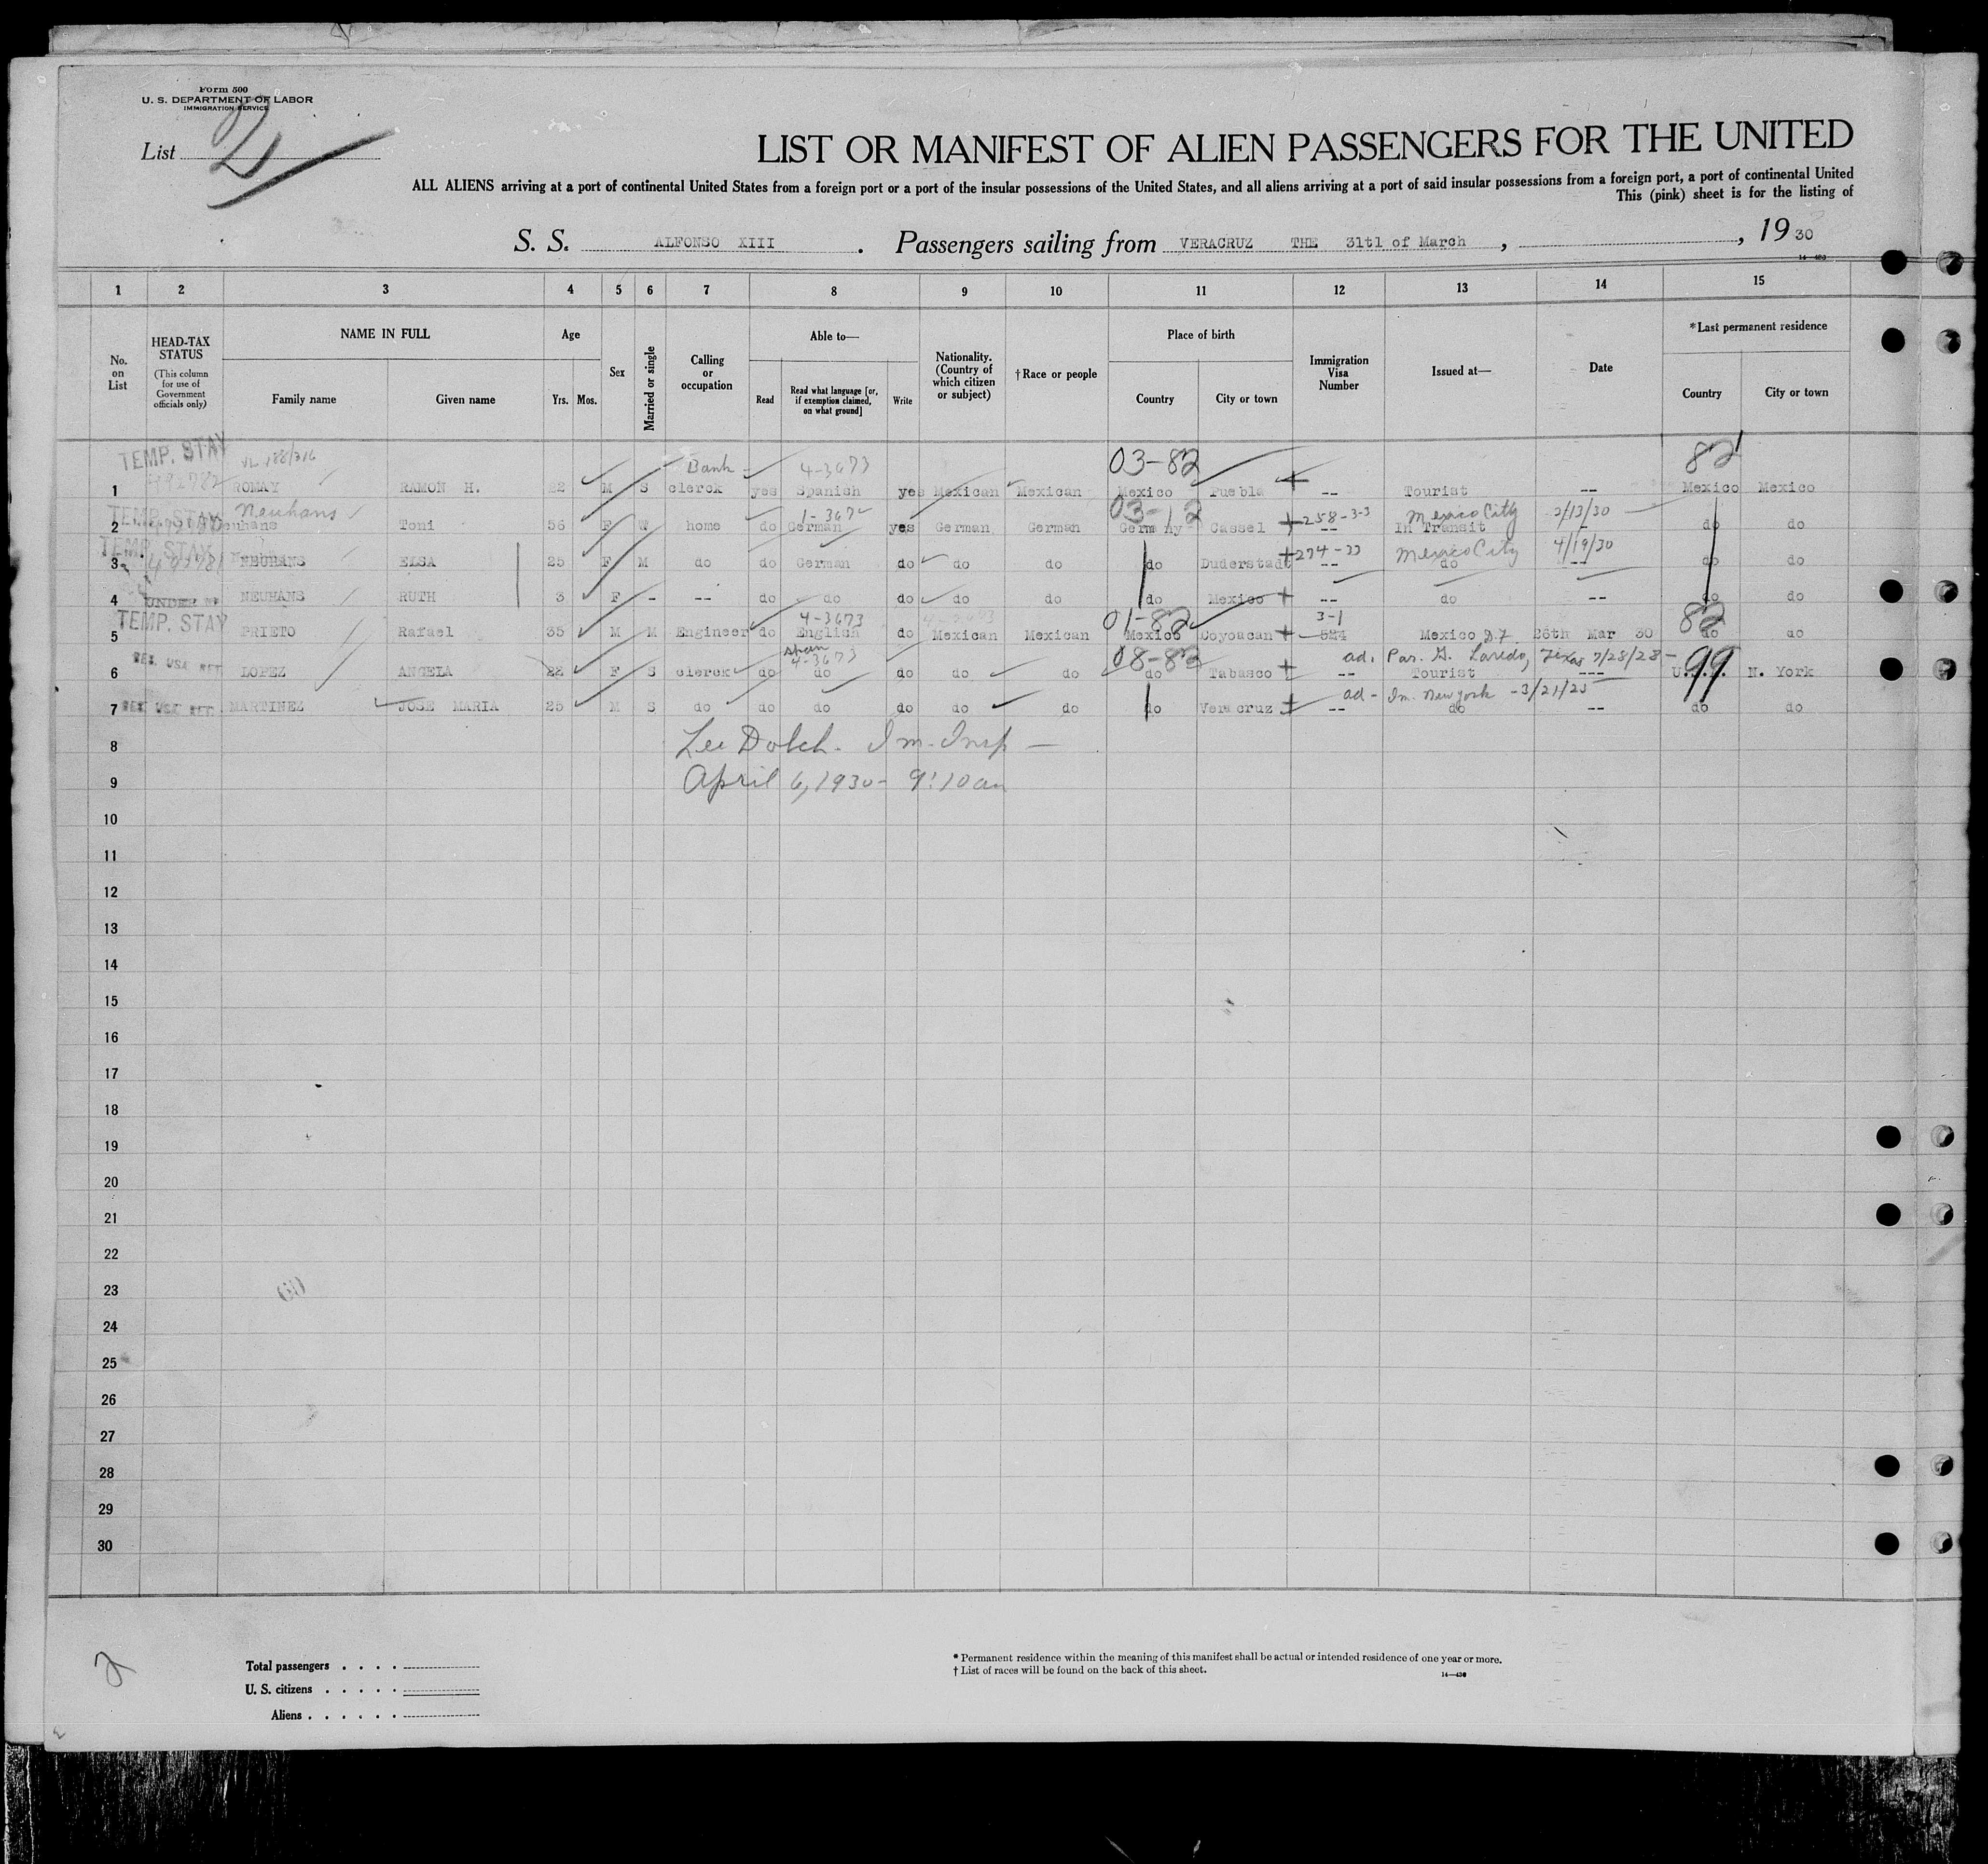 Form 500
U. S. DEPARTMENT OF LABOR
IMMIGRATION SERVICE
List 2
LIST OR MANIFEST OF ALIEN PASSENGERS FOR THE UNITED
ALL ALIENS arriving at a port of continental United States from a foreign port or a port of the insular possessions of the United States, and all aliens arriving at a port of said insular possessions from a foreign port, a port of continental United
This (pink) sheet is for the listing of
S. S. ALFONSO XIII. Passengers sailing from VERACRUZ THE 31tl of March, , 1930
14-430
1 2 3 4 5 6 7 8 9 10 11 12 13 14 15
No. on List
HEAD-TAX STATUS (This column for use of Government officials only)
NAME IN FULL
Family name Given name
Age
Yrs. Mos.
Sex
Married or single
Calling or occupation
Able to—
Read Read what language [or, if exemption claimed, on what ground] Write
Nationality. (Country of which citizen or subject)
†Race or people
Place of birth
Country City or town
Immigration Visa Number
Issued at—
Date
*Last permanent residence
Country City or town
TEMP. STAY VL 188/316 Bank 4-3673 03-82 82
1 ROMAY RAMON H. 22 M S clerck yes Spanish yes Mexican Mexican Mexico Puebla -- Tourist -- Mexico Mexico
TEMP. STAY Neuhans 1-367 03-12 258-3-3 Mexico City 2/13/30
2 Neuhans Toni 56 F W home do German yes German German Germany Cassel -- In Transit do do
TEMP. STAY 274-33 Mexico City 4/19/30
3 492781 NEUHANS ELSA 25 F M do do German do do do do Duderstadt -- do -- do do
4 UNDER NEUHANS RUTH 3 F - -- do do do do do do Mexico -- do -- do do
TEMP. STAY 4-3673 01-82 3-1 82
5 PRIETO Rafael 35 M M Engineer do English do Mexican Mexican Mexico Coyoacan 524 Mexico D.F. 26th Mar 30 do do
RES. USA RET. Span 4-3673 08-82 ad. Par. G. Laredo, Texas 7/28/28 99
6 LOPEZ ANGELA 22 F S clerck do do do do do do Tabasco -- Tourist --- U.S.A. N. York
RES. USA RET. ad - Im. New York - 3/21/25
7 MARTINEZ JOSE MARIA 25 M S do do do do do do do Vera cruz -- do -- do do
8 Lee Dolch. Im. Insp —
9 April 6, 1930 - 9:10 am
10
11
12
13
14
15
16
17
18
19
20
21
22
23
24
25
26
27
28
29
30
2
Total passengers . . . .
U. S. citizens . . . . .
Aliens . . . . . .
* Permanent residence within the meaning of this manifest shall be actual or intended residence of one year or more.
† List of races will be found on the back of this sheet.
14-430